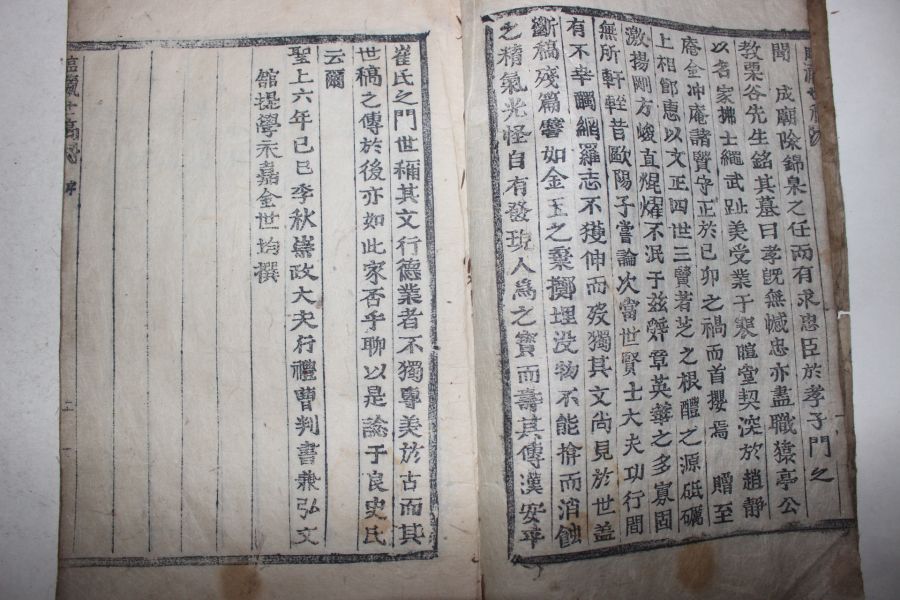 聞 成廟除錦臬之任而有求忠臣於孝子門之
教栗谷先生銘其墓曰孝旣無憾忠亦盡職猿亭公
以名家拂士繩武趾美受業于寒暄堂契深於趙靜
庵金冲庵諸賢守正於已卯之禍而首攖焉 贈至
上相節惠以文正四世三賢著芝之根醴之源砥礪
激揚剛方峻直焜燿不泯于玆辭章英華之多寡固
無所軒輊昔歐陽子嘗論次當世賢士大夫功行間
有不幸罹網羅志不獲伸而歿獨其文尙見於世盖
斷稿殘篇譬如金玉之棄擲埋没物不能揜而消蝕
之精氣光怪自有發現人爲之寶而壽其傳漢安平
崔氏之門世稱其文行德業者不獨專美於古而其
世稿之傳於後亦如此家否乎聊以是諗于良史氏
云爾
聖上六年己巳季秋崇政大夫行禮曹判書兼弘文
舘提學永嘉金世均撰
序
二